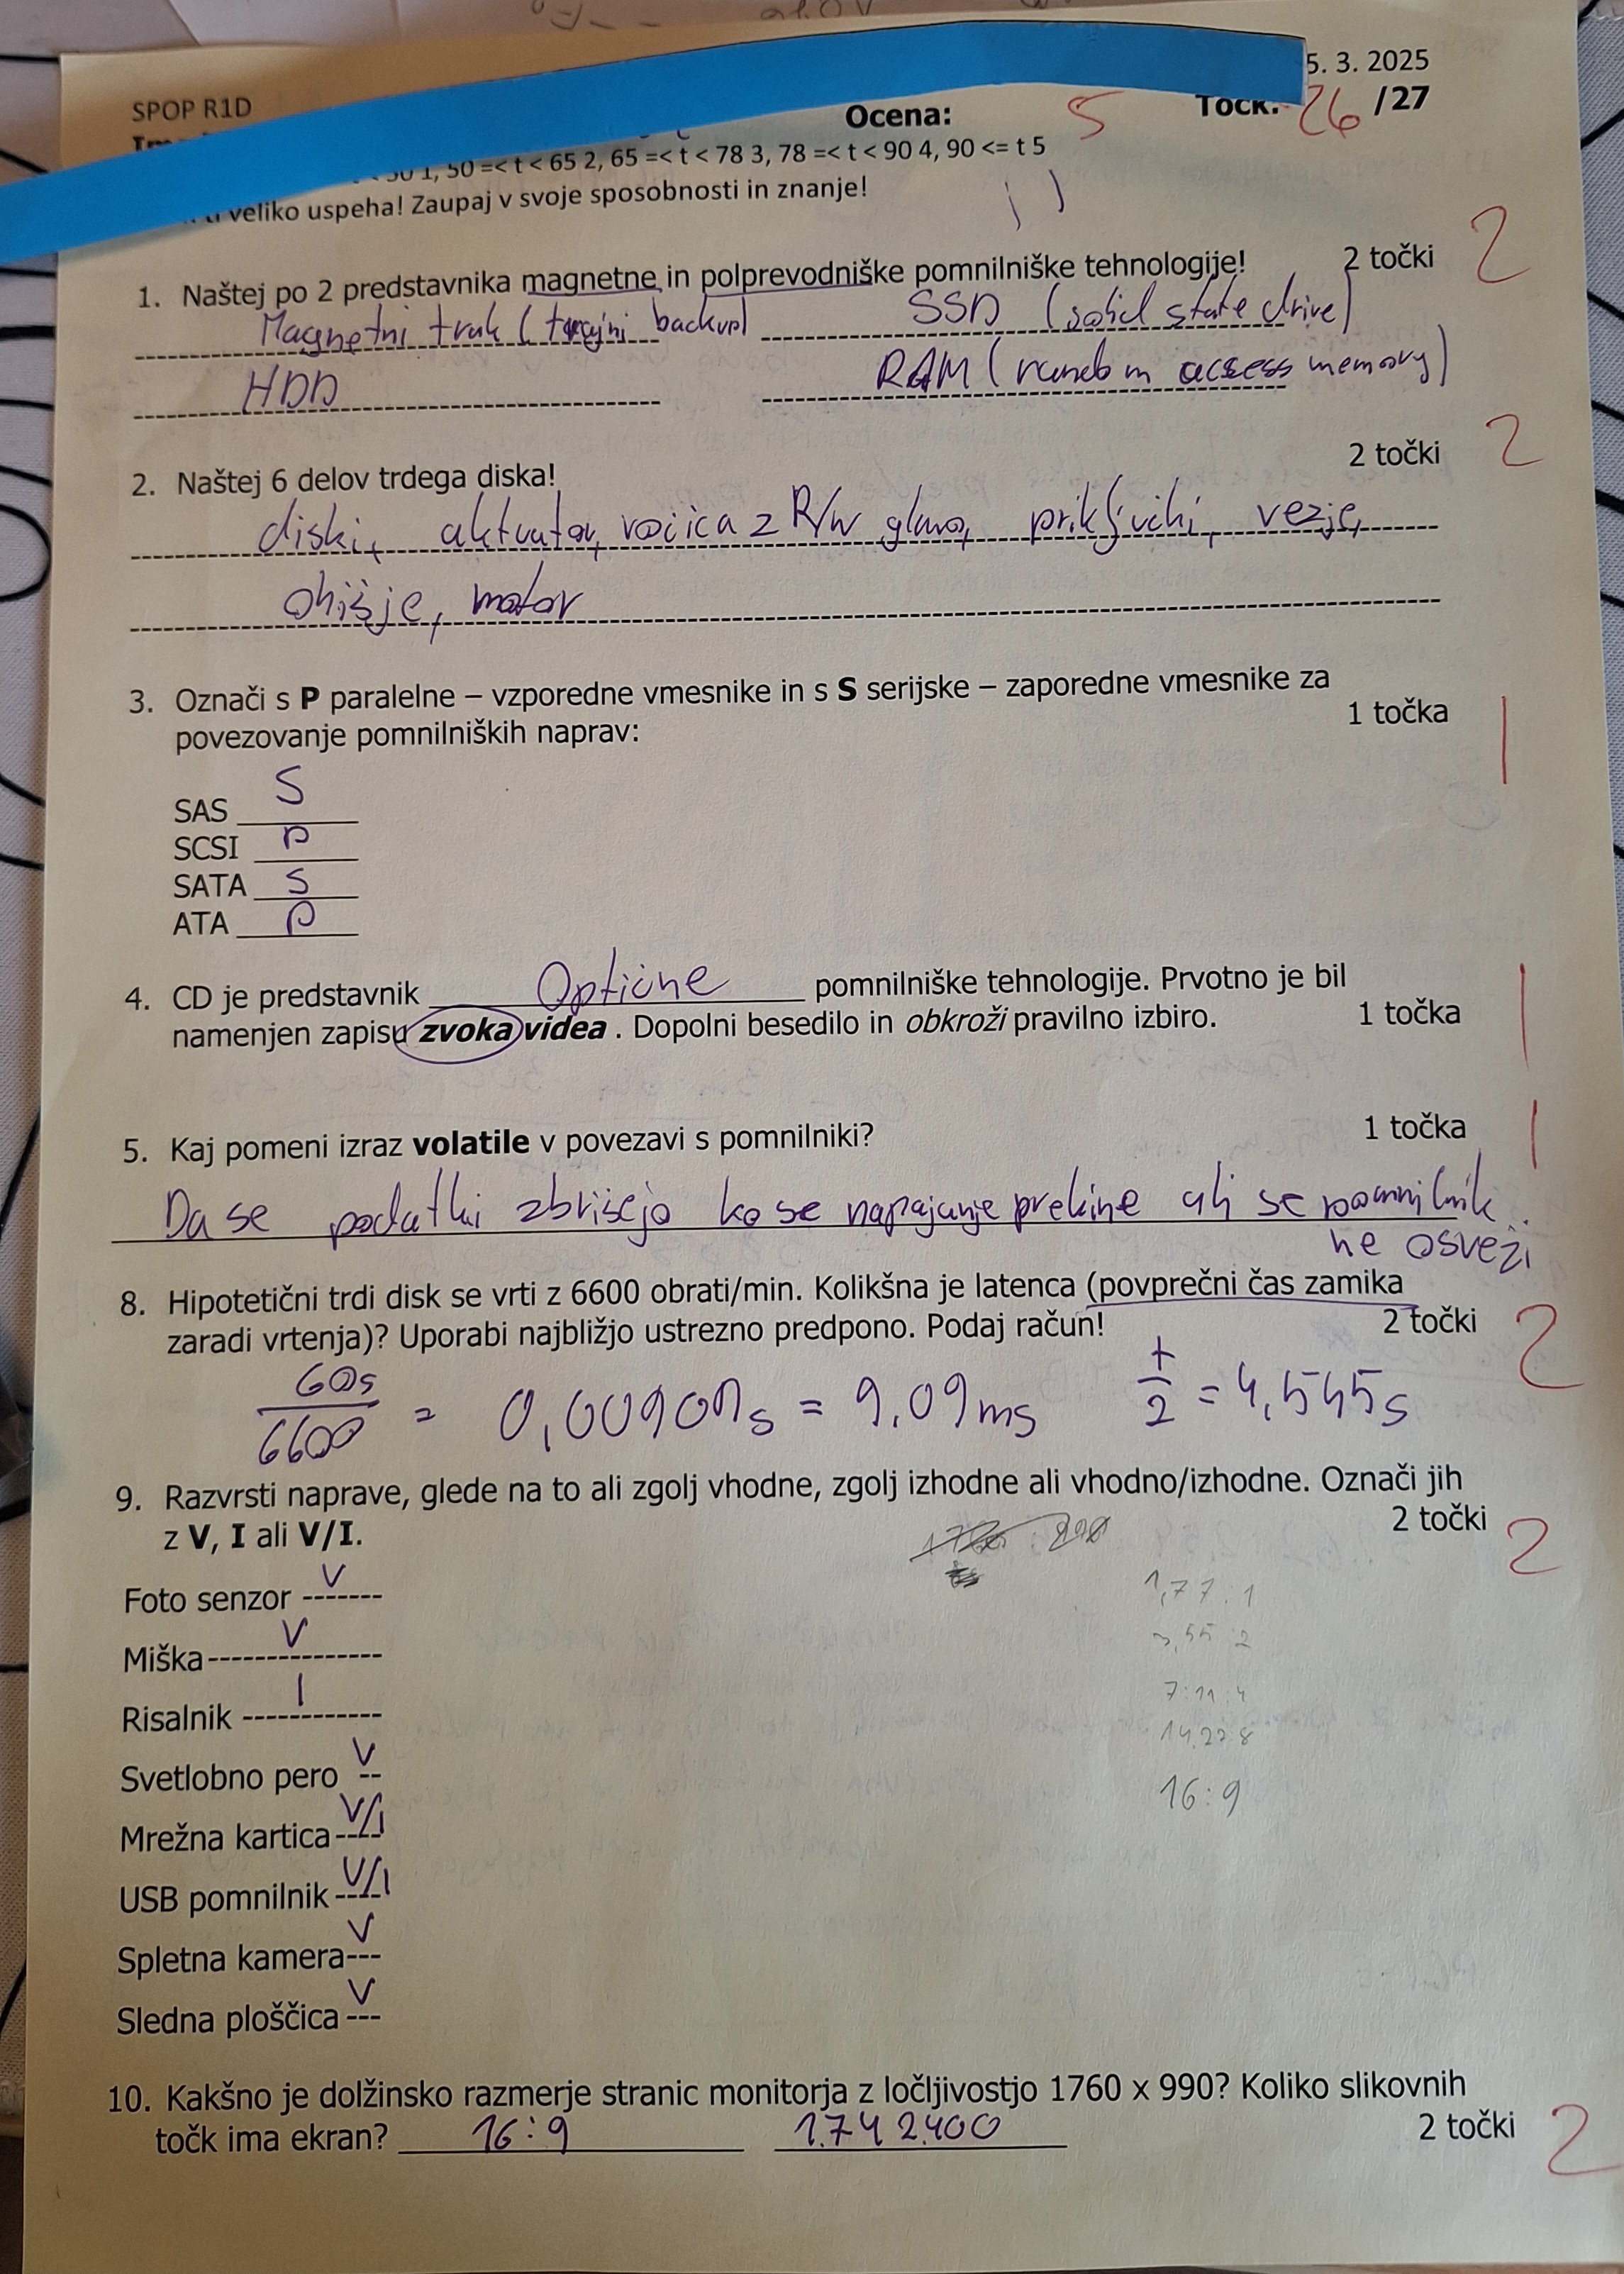 5. 3. 2025
SPOP R1D
Ocena: 5 Točk: 26 /27
50 1, 50 =< t < 65 2, 65 =< t < 78 3, 78 =< t < 90 4, 90 <= t 5
veliko uspeha! Zaupaj v svoje sposobnosti in znanje!
1. Naštej po 2 predstavnika magnetne in polprevodniške pomnilniške tehnologije! 2 točki 2
Magnetni trak (trajni backup) SSD (solid state drive)
HDD RAM (random access memory)
2. Naštej 6 delov trdega diska! 2 točki 2
diski, aktuator, ročica z R/W glavo, priključki, vezje,
ohišje, motor
3. Označi s P paralelne – vzporedne vmesnike in s S serijske – zaporedne vmesnike za
povezovanje pomnilniških naprav: 1 točka 1
SAS S
SCSI P
SATA S
ATA P
4. CD je predstavnik Optične pomnilniške tehnologije. Prvotno je bil
namenjen zapisu zvoka videa . Dopolni besedilo in obkroži pravilno izbiro. 1 točka 1
5. Kaj pomeni izraz volatile v povezavi s pomnilniki? 1 točka 1
Da se podatki zbrišejo ko se napajanje prekine ali se pomnilnik
ne osveži
8. Hipotetični trdi disk se vrti z 6600 obrati/min. Kolikšna je latenca (povprečni čas zamika
zaradi vrtenja)? Uporabi najbližjo ustrezno predpono. Podaj račun! 2 točki 2
60s/6600 = 0,00909s = 9,09ms t/2 = 4,545s
9. Razvrsti naprave, glede na to ali zgolj vhodne, zgolj izhodne ali vhodno/izhodne. Označi jih
z V, I ali V/I. 2 točki 2
Foto senzor V
1,77 : 1
Miška V
3,55 2
Risalnik I
7:11 : 4
14,22 8
Svetlobno pero V
16:9
Mrežna kartica V/I
USB pomnilnik V/I
Spletna kamera V
Sledna ploščica V
10. Kakšno je dolžinsko razmerje stranic monitorja z ločljivostjo 1760 x 990? Koliko slikovnih
točk ima ekran? 16:9 1.742.400 2 točki 2